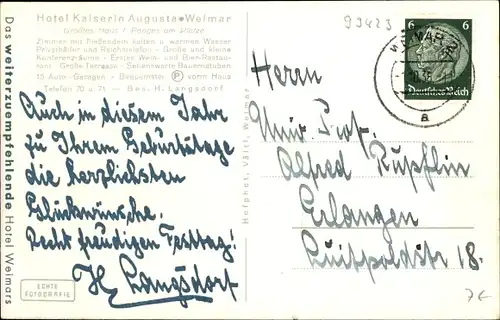 Hotel Kaiserin Augusta • Weimar
Großes Haus I. Ranges am Platze
Zimmer mit fließendem kalten u. warmen Wasser
Privatbäder und Reichstelefon - Große und kleine
Konferenzräume - Erstes Wein- und Bier-Restau-
rant - Große Terrasse - Sehenswerte Bauernstuben
15 Auto-Garagen - Bequemster P vorm Haus
Telefon 70 u. 71 - Bes. H. Langsdorf
Auch in diesem Jahr
zu Ihrem Geburtstage
die herzlichsten
Glückwünsche.
Recht freudigen Festtag!
H Langsdorf
ECHTE
FOTOGRAFIE
Das weiterzuempfehlende Hotel Weimars
Hofphot. Vältl, Weimar
93423
6 6
Deutsches Reich
WEIMAR
a
Herrn
Univ. Prof.
Alfred Rupflin
Erlangen
Luitpoldstr 18.
7€